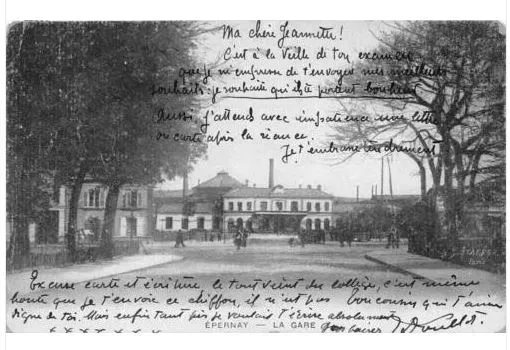 Ma chère Jeannette!
C'est à la veille de ton examen
que je m'empresse de t'envoyer mes meilleurs
souhaits: je souhaite qu'il te portent bonheur
Aussi j'attends avec impatience une lettre
ou carte après la séance.
Je t'embrasse tendrement
Excuse carte et écriture, le tout vient du collège, c'est même
honte que je t'envoie ce chiffon, il n'est pas
digne de toi. Mais enfin tant pis je voulais t'écrire absolument
ÉPERNAY — LA GARE